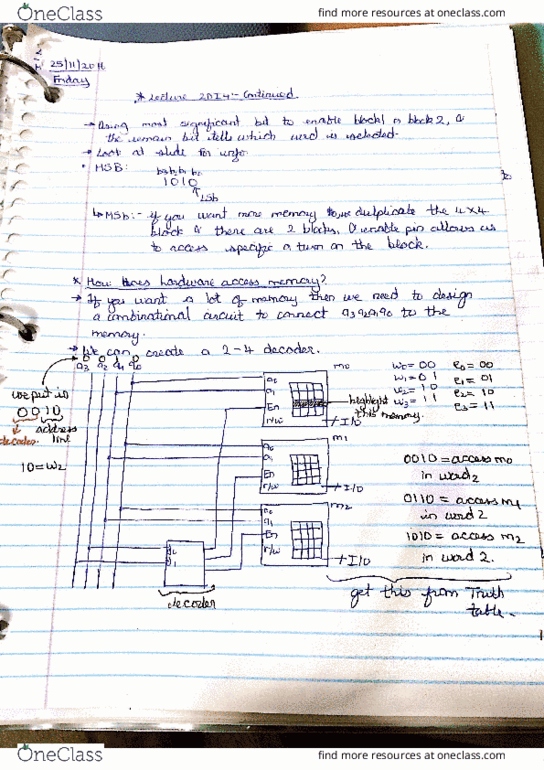 OneClass
find more resources at oneclass.com
25/11/2011
Friday
* Lecture 20I4:- Continued
→ Using most significant bit to enable block1 or block 2, &
the remain bit tells which word is selected.
→ Look at slide for info
• MSB: b3 b2 b1 b0
1010
LSb
↳ MSb:- if you want more memory dulplicate the 4x4
block & there are 2 blocks. enable pin allows us
to access specific & turn on the block.
* How does hardware access memory?
→ If you want a lot of memory then we need to design
a combinational circuit to connect a3a2a1a0 to the
memory.
→ We can create a 2-4 decoder.
a3 a2 a1 a0
we put in
0010
decoder address
line
10=w2
a0
a1
En
r/w
m0
I/O
highlight
this memory.
w0=00 e0=00
w1=01 e1=01
w2=10 e2=10
w3=11 e3=11
a0
a1
En
r/w
m1
I/O
0010 = access m0
in word 2
0110 = access m1
in word 2
a0
a1
En
r/w
m2
I/O
1010 = access m2
in word 2.
decoder
get this from Truth
table.
OneClass
find more resources at oneclass.com